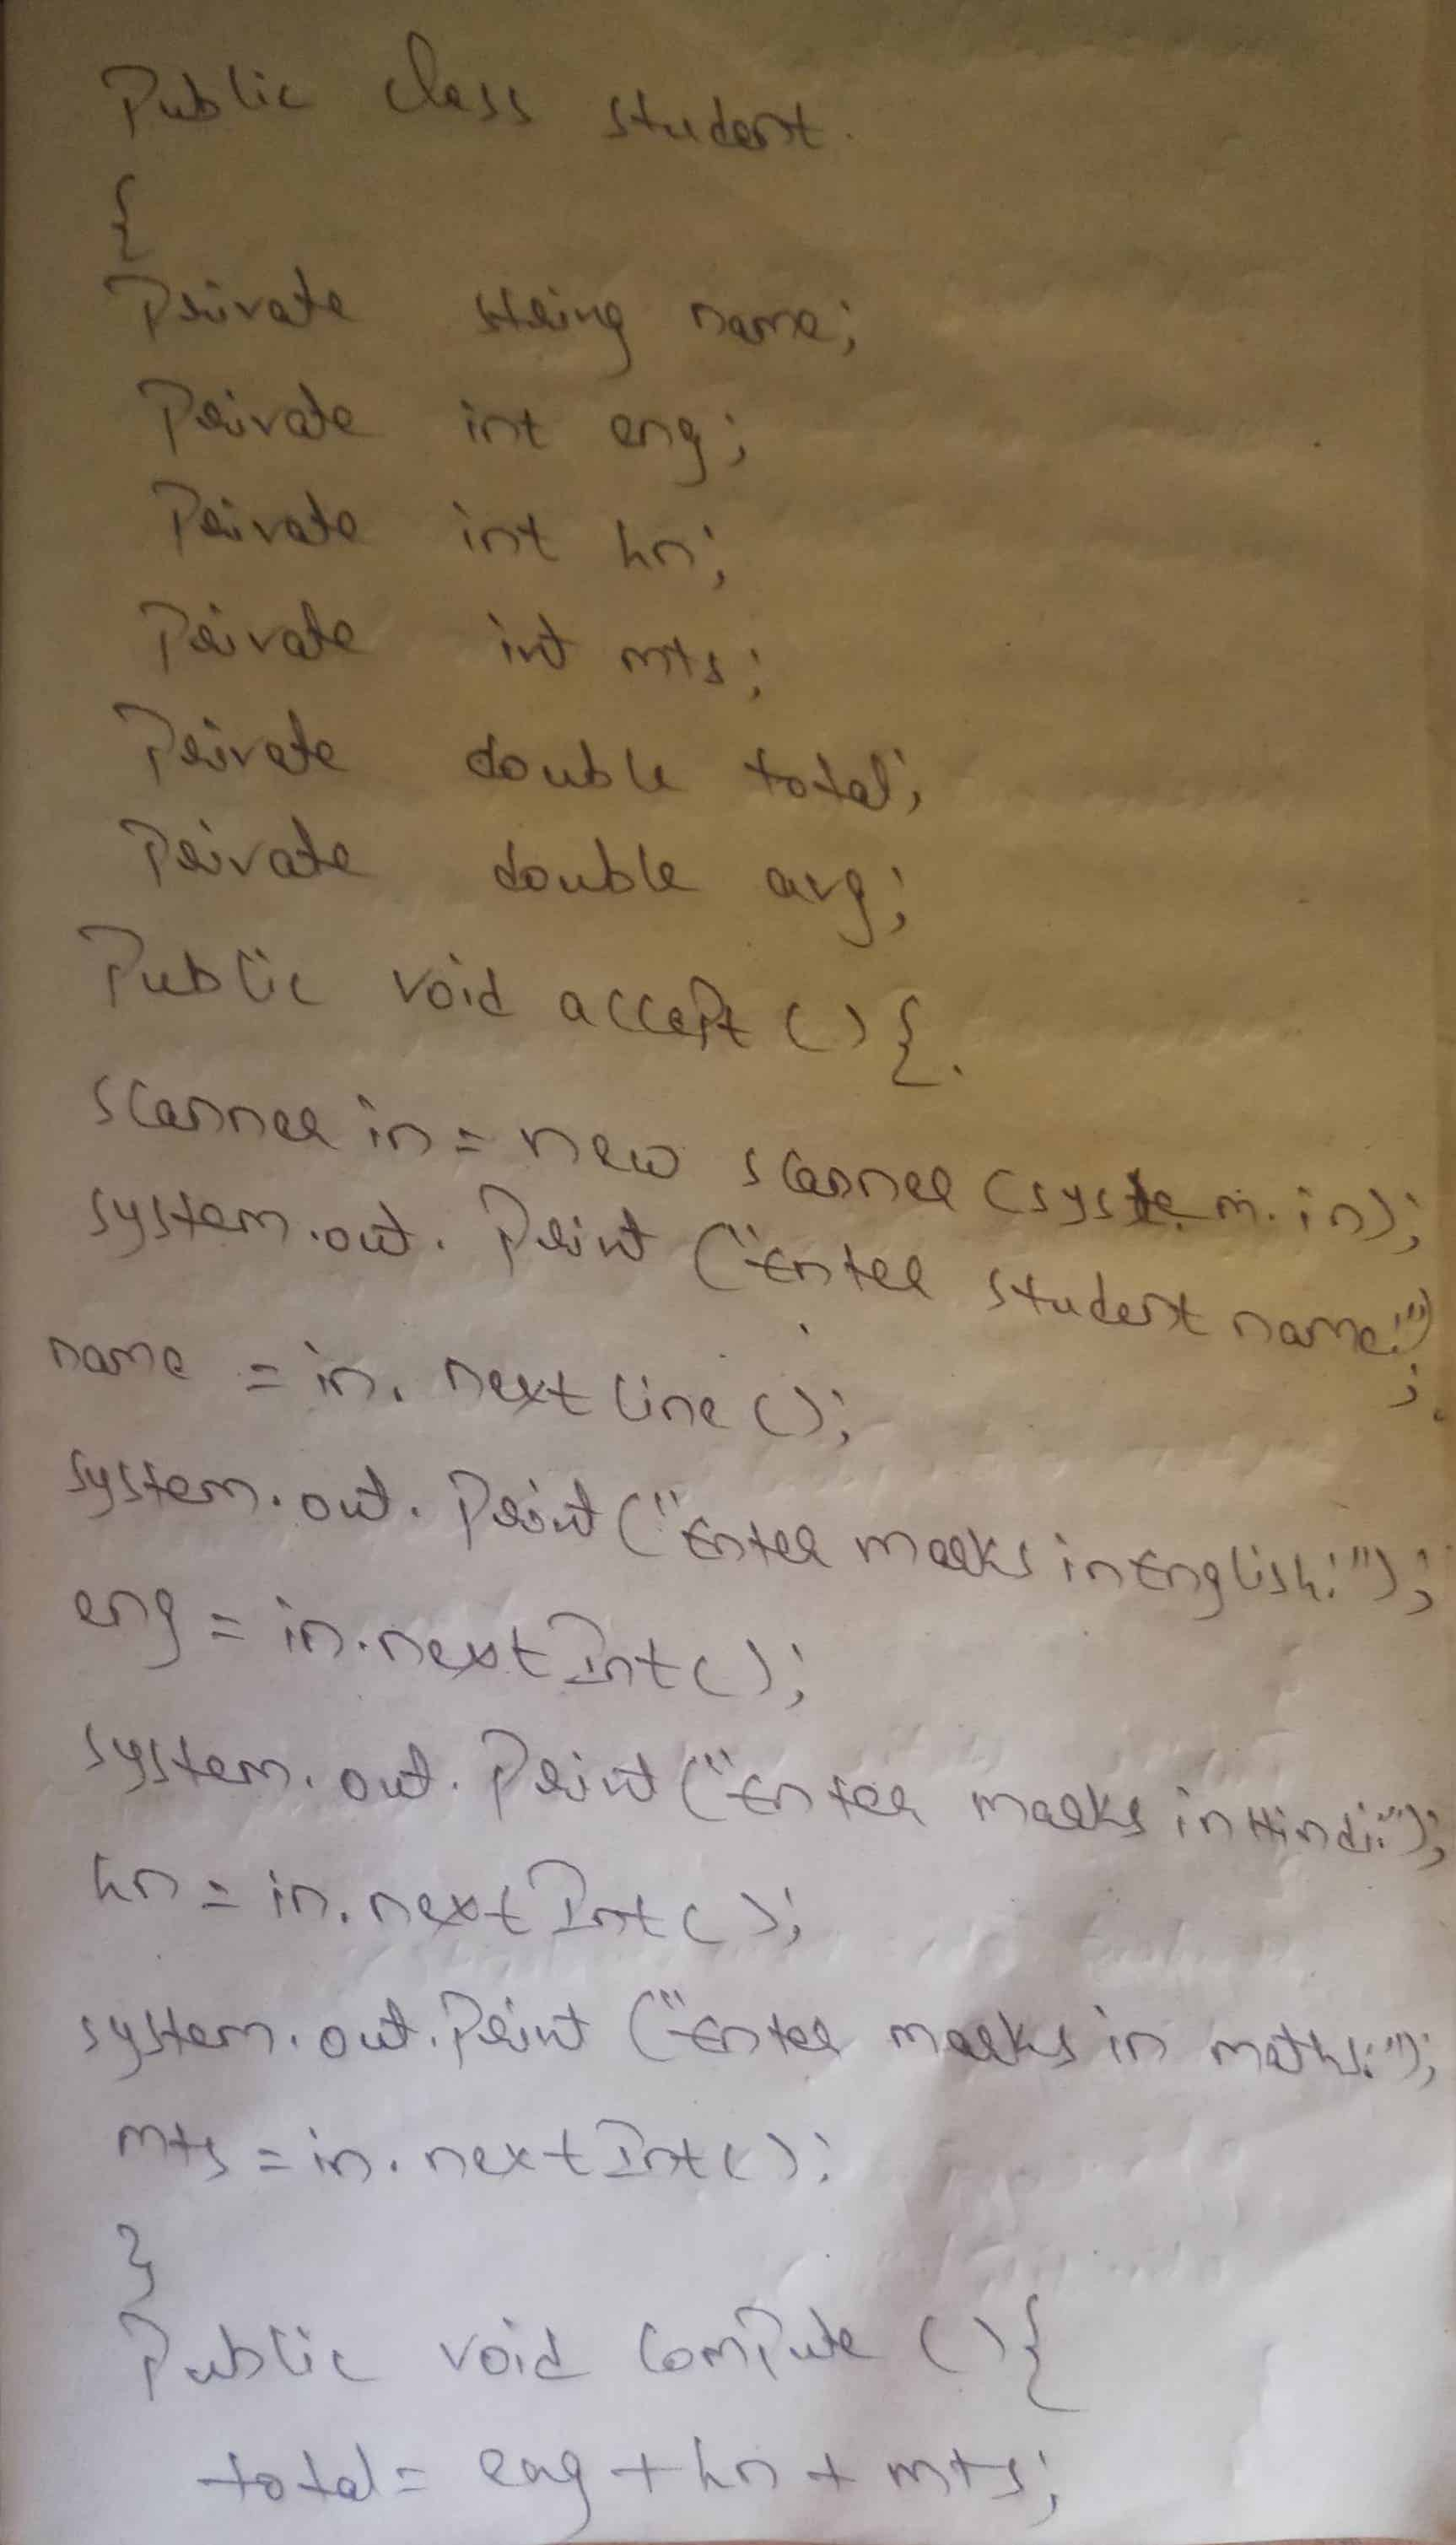 Public class student.
{
Private string name;
Private int eng;
Private int hn;
Private int mts;
Private double total;
Private double avg;
Public void accept () {.
Scanner in = new scanner (system.in);
system.out. Print ("Enter student name:");
name = in. next line ();
system.out. Print ("Enter marks in English:");
eng = in.next Int ();
system. out. Print ("Enter marks in Hindi:");
hn = in. next Int ();
system. out. Print ("Enter marks in maths:");
mts = in. next Int ():
}
Public void compute () {
total = eng + hn + mts;